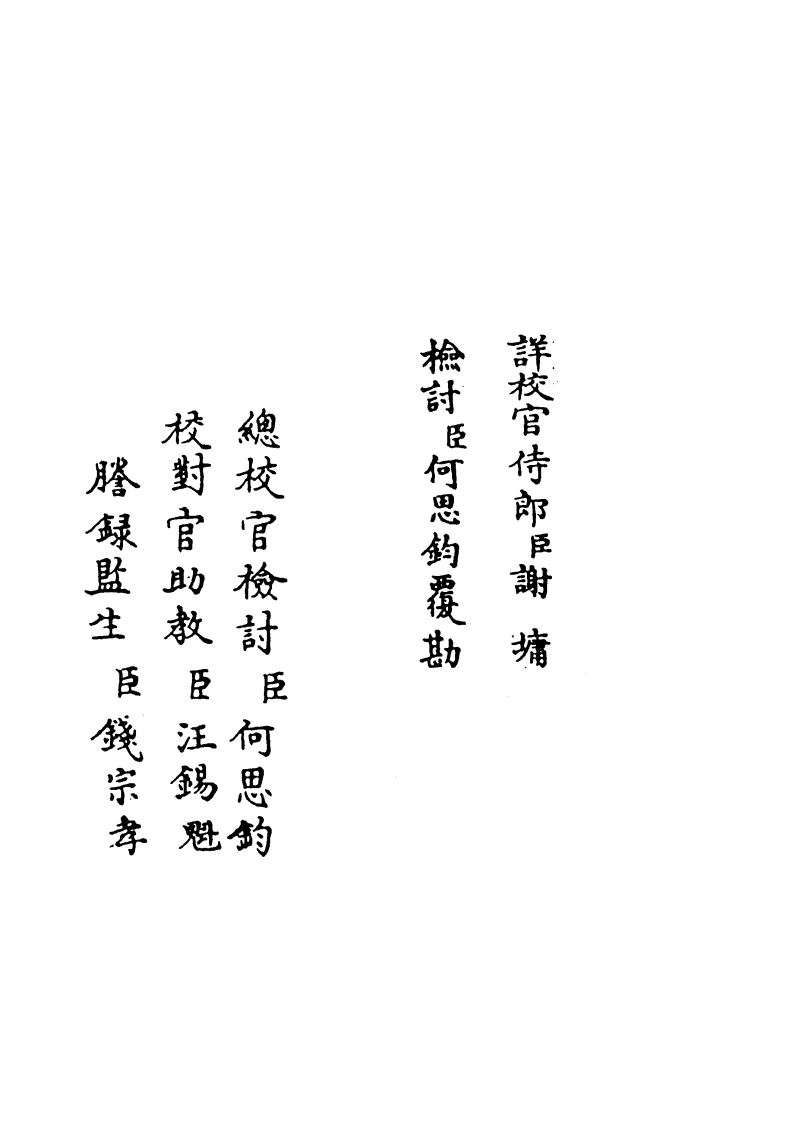 詳校官侍郎臣謝墉
檢討臣何思鈞覆勘
總校官檢討臣何思鈞
校對官助教臣汪錫魁
謄録監生臣錢宗孝